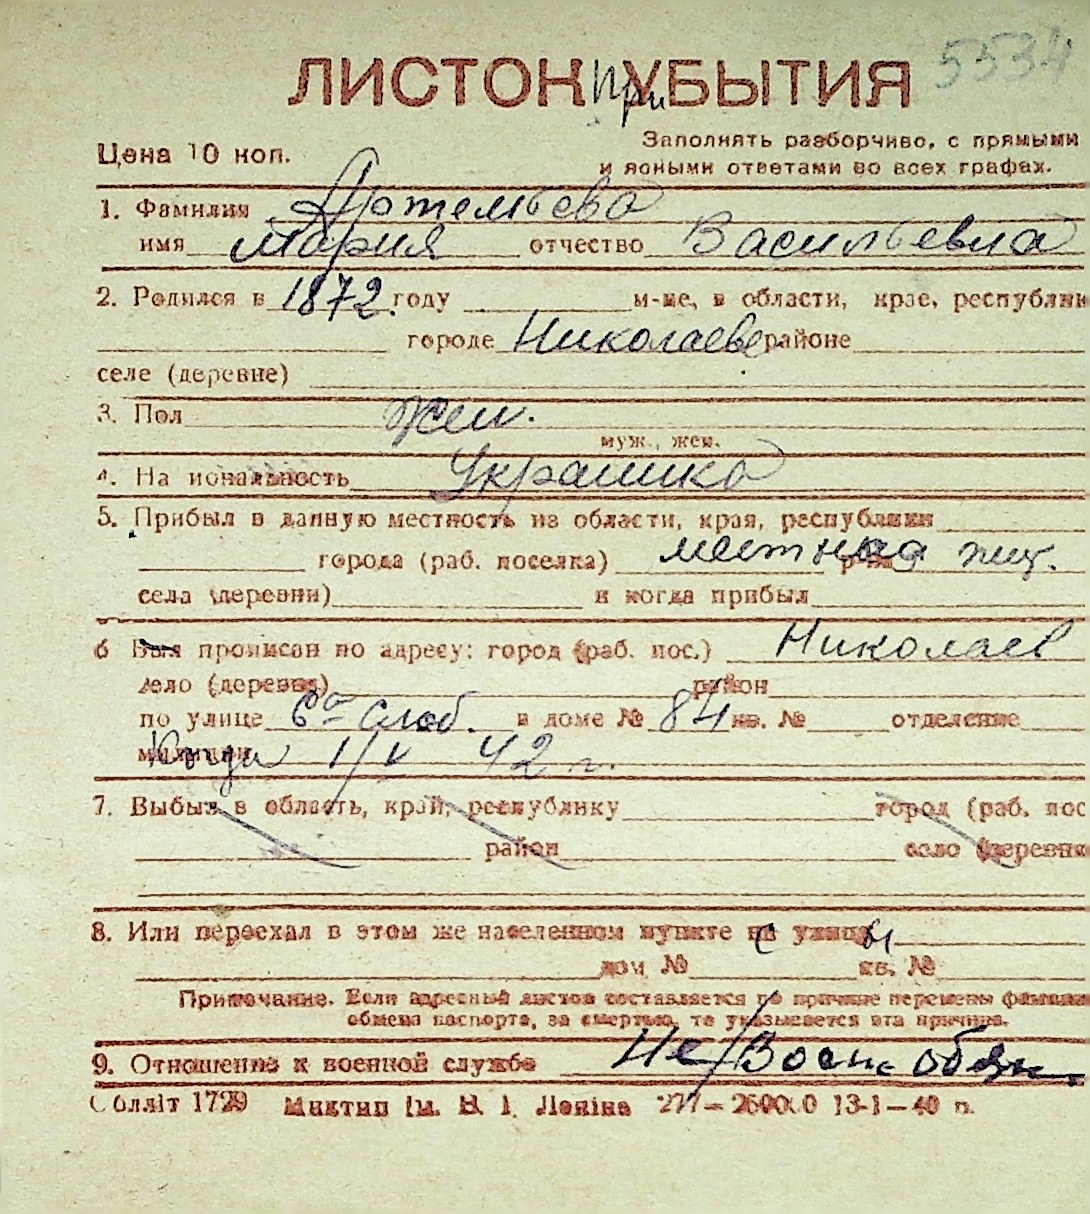 5534
ЛИСТОК при УБЫТИЯ
Цена 10 коп.
Заполнять разборчиво, с прямыми
и ясными ответами во всех графах.
1. Фамилия Артемьева
имя Мария отчество Васильевна
2. Родился в 1872 году м-це, в области, крае, республик
городе Николаеве районе
селе (деревне)
3. Пол жен.
муж., жен.
4. На иональность Украинка
5. Прибыл в данную местность из области, края, республики
города (раб. поселка) местная жит.
села (деревни) и когда прибыл
6 Был прописан по адресу: город (раб. пос.) Николаев
село (деревня) район
по улице 6ая Слоб. в доме № 84 кв. № отделение
милиции Когда 1/V 42 г.
7. Выбыл в область, край, республику город (раб. пос
район село (деревня
8. Или переехал в этом же населенном пункте с улицы
дом № кв. №
Примечание. Если адресный листок составляется по причине перемены фамилии
обмена паспорта, за смертью, то указывается эта причина.
9. Отношение к военной службе Не/Воен. обяз.
Облліт 1729 Миктип ім. В. І. Леніна 277—250000 13-1—40 п.